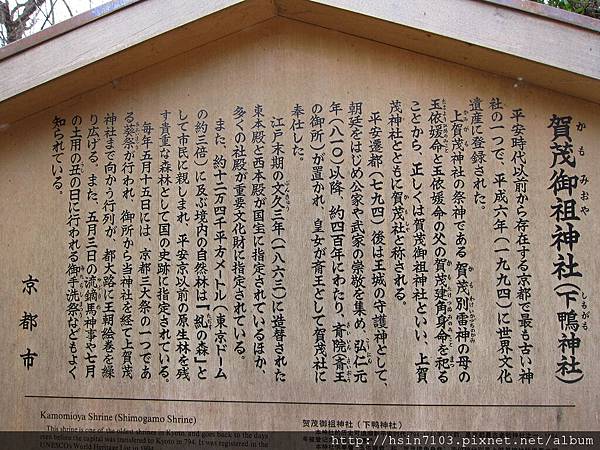 賀茂御祖神社(下鴨神社)
かもみおや
しもがも
平安時代以前から存在する京都で最も古い神
社の一つで、平成六年(一九九四)に世界文化
遺産に登録された。
上賀茂神社の祭神である賀茂別雷神の母の
玉依媛命と玉依媛命の父の賀茂建角身命を祀る
ことから、正しくは賀茂御祖神社といい、上賀
茂神社とともに賀茂社と称される。
平安遷都(七九四)後は王城の守護神として、
朝廷をはじめ公家や武家の崇敬を集め、弘仁元
年(八一〇)以降、約四百年にわたり、斎院(斎王
の御所)が置かれ、皇女が斎王として賀茂社に
奉仕した。
江戸末期の文久三年(一八六三)に造替された
東本殿と西本殿が国宝に指定されているほか、
多くの社殿が重要文化財に指定されている。
また、約十二万四千平方メートル(東京ドーム
の約三倍)に及ぶ境内の自然林は「糺の森」と
して市民に親しまれ、平安京以前の原生林を残
す貴重な森林として国の史跡に指定されている。
毎年五月十五日には、京都三大祭の一つであ
る葵祭が行われ、御所から当神社を経て上賀茂
神社まで向かう行列が、都大路に王朝絵巻を繰
り広げる。また、五月三日の流鏑馬神事や七月
の土用の丑の日に行われる御手洗祭などもよく
知られている。
京都市
Kamomioya Shrine (Shimogamo Shrine)
This shrine is one of the oldest shrines in Kyoto, and goes back to the days
even before the capital was transferred to Kyoto in 794. It was registered in the
UNESCO's World Heritage List in 1994.
贺茂御祖神社(下鸭神社)
http://hsin7103.pixnet.net/album